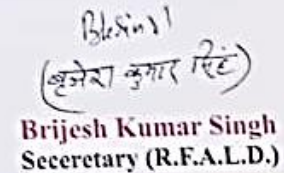 (बृजेश कुमार सिंह)
Brijesh Kumar Singh
Seceretary (R.F.A.L.D.)